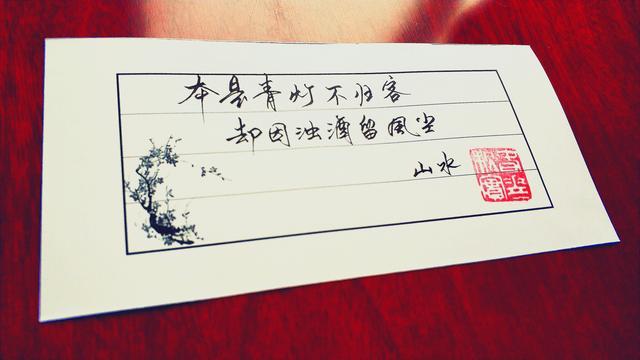 本是青灯不归客
却因浊酒留风尘
山水